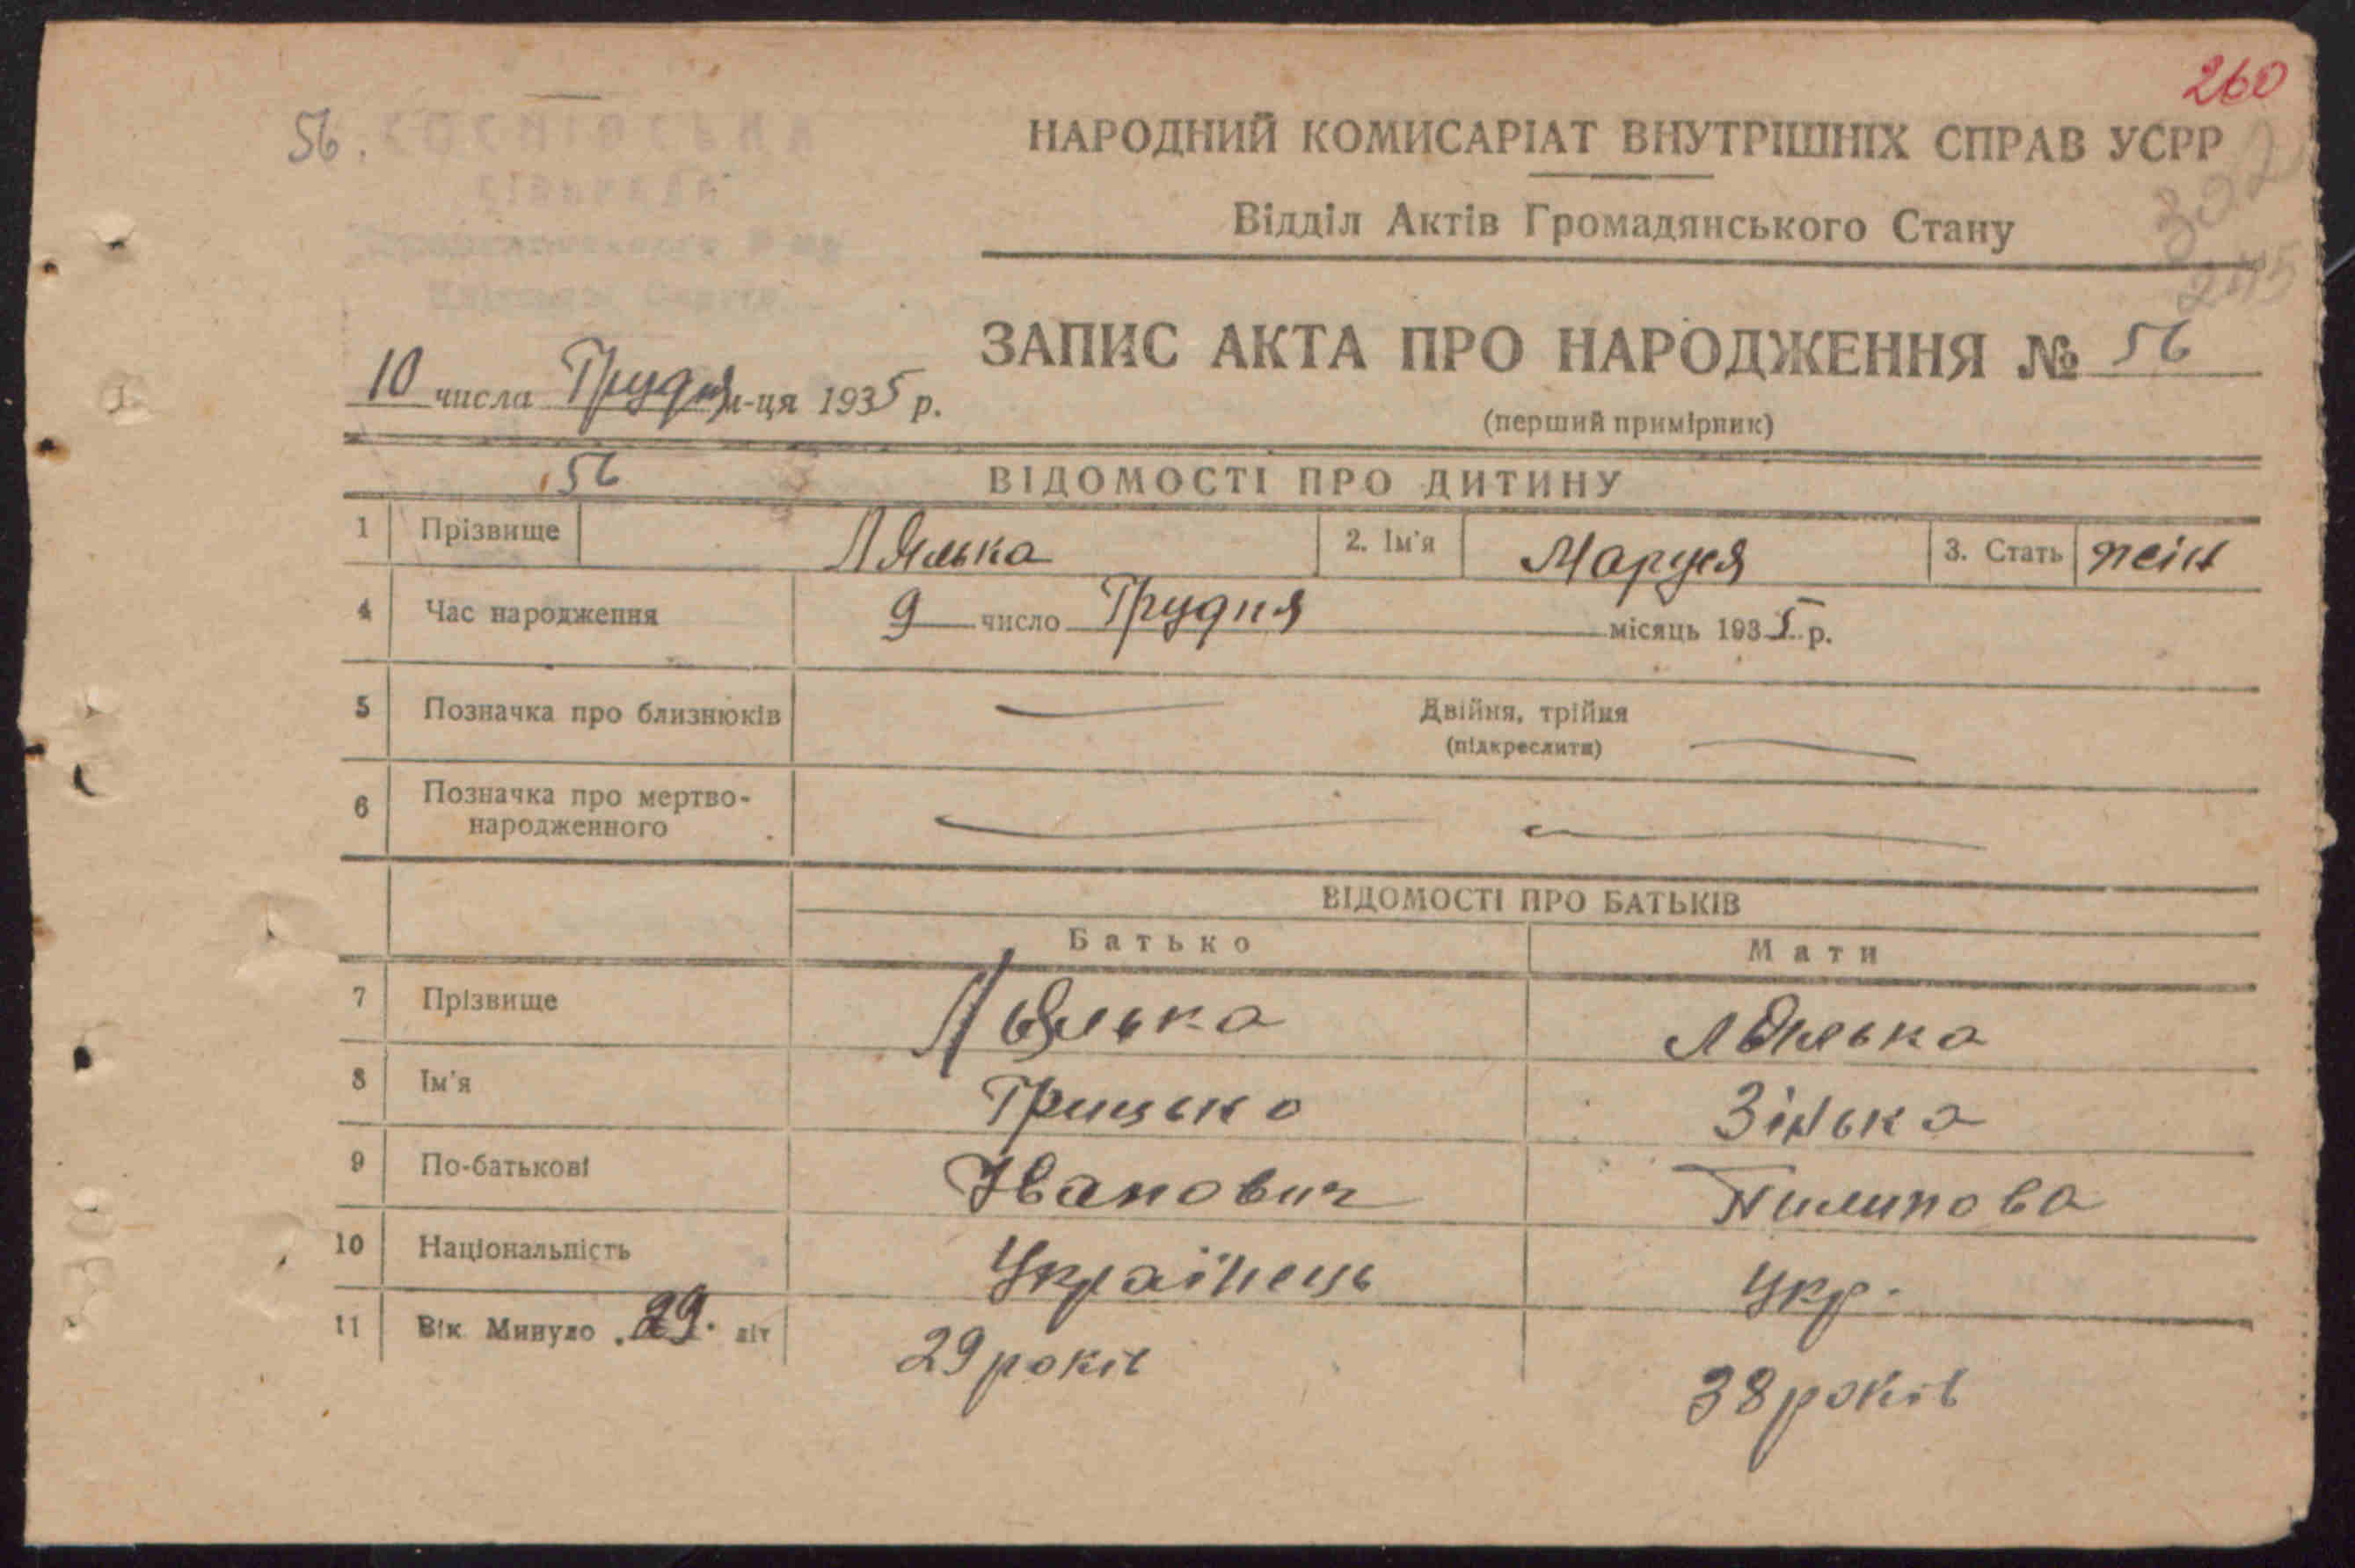 260
56. КОСНІВСЬКА
НАРОДНИЙ КОМИСАРІАТ ВНУТРІШНІХ СПРАВ УСРР
302
СІЛЬРАДА
Відділ Актів Громадянського Стану
245
ЗАПИС АКТА ПРО НАРОДЖЕННЯ № 56
10 числа Грудня м-ця 1935 р.
(перший примірник)
56
ВІДОМОСТІ ПРО ДИТИНУ
1 Прізвище 2. Ім'я Маруся 3. Стать жін
4 Час народження 9 число Грудня місяць 1935 р.
5 Позначка про близнюків Двійня, трійня
(підкреслити)
6 Позначка про мертво-
народженного
ВІДОМОСТІ ПРО БАТЬКІВ
Батько Мати
7 Прізвище
8 Ім'я Грицько Зінька
9 По-батькові Іванович Пилипова
10 Національність Українець Укр.
11 Вік Минуло 29. літ 29 років 38 років